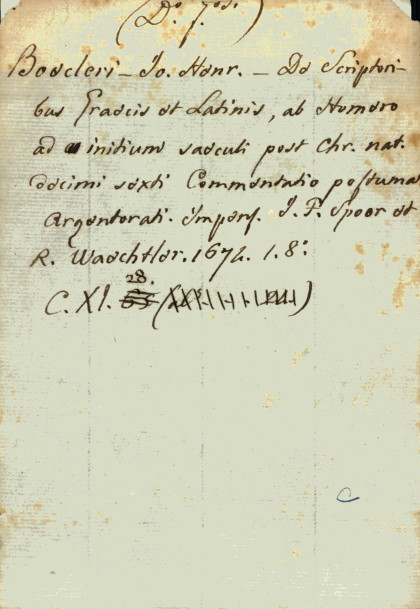 (Do
Boecleri - Jo. Henr. - De Scriptori-
bus Graecis et Latinis, ab Homero
ad initium saeculi post Chr. nat.
decimi sexti Commentatio postuma
Argentorati. Impens. J. F. Spoor et
R. Waechtler. 1674. 1. 8º
C. XI. 28.
C